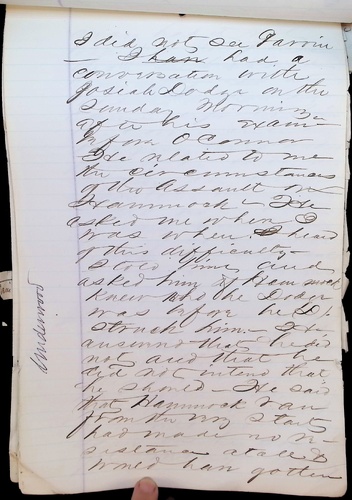 I did not see Parvin
— I han had a
conversation with
Josiah Dodge on the
Sunday Morning
after his Exam
before O'Connor
He related to me
the circumstances
of the Assault on
Hammock — He
asked me where I
was when I heard
of this difficulty —
I told him and
asked him if Hammock
knew who he Dodge
was before he D.
struck him. — He
answered that he did
not and that he
did not intend that
he should. He said
that Hammock ran
from the very start
had made no re-
sistance at all &
would han gotten
Underwood